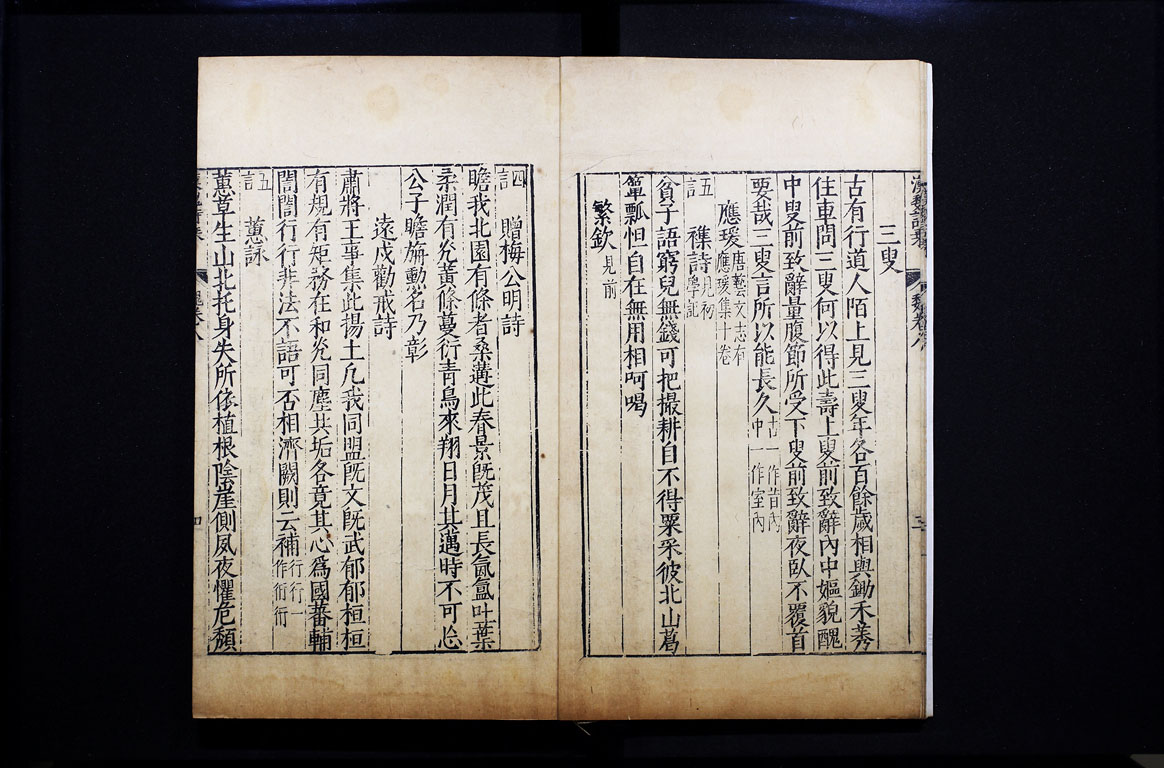 三叟
古有行道人陌上見三叟年各百餘歲相與鋤禾莠
住車問三叟何以得此壽上叟前致辭內中嫗貌醜
中叟前致辭量腹節所受下叟前致辭夜臥不覆首
要哉三叟言所以能長久古一作昔內中一作室內
應瑗唐藝文志有應瑗集十卷
五言 襍詩見初學記
貧子語窮兒無錢可把撮耕自不得粟采彼北山葛
簞瓢怛自在無用相呵喝
繁欽見前
四言 贈梅公明詩
瞻我北園有條者桑遘此春景既茂且長氤氳吐葉
柔潤有光黃條蔓衍青鳥來翔日月其邁時不可忘
公子瞻旃勳名乃彰
遠戍勸戒詩
肅將王事集此揚土凡我同盟既文既武郁郁桓桓
有規有矩務在和光同塵共垢各竟其心為國蕃輔
誾誾行行非法不語可否相濟闕則云補行行一作衎衎
五言 蕙詠
蕙草生山北托身失所依植根陰崖側夙夜懼危頹
魏卷八
四